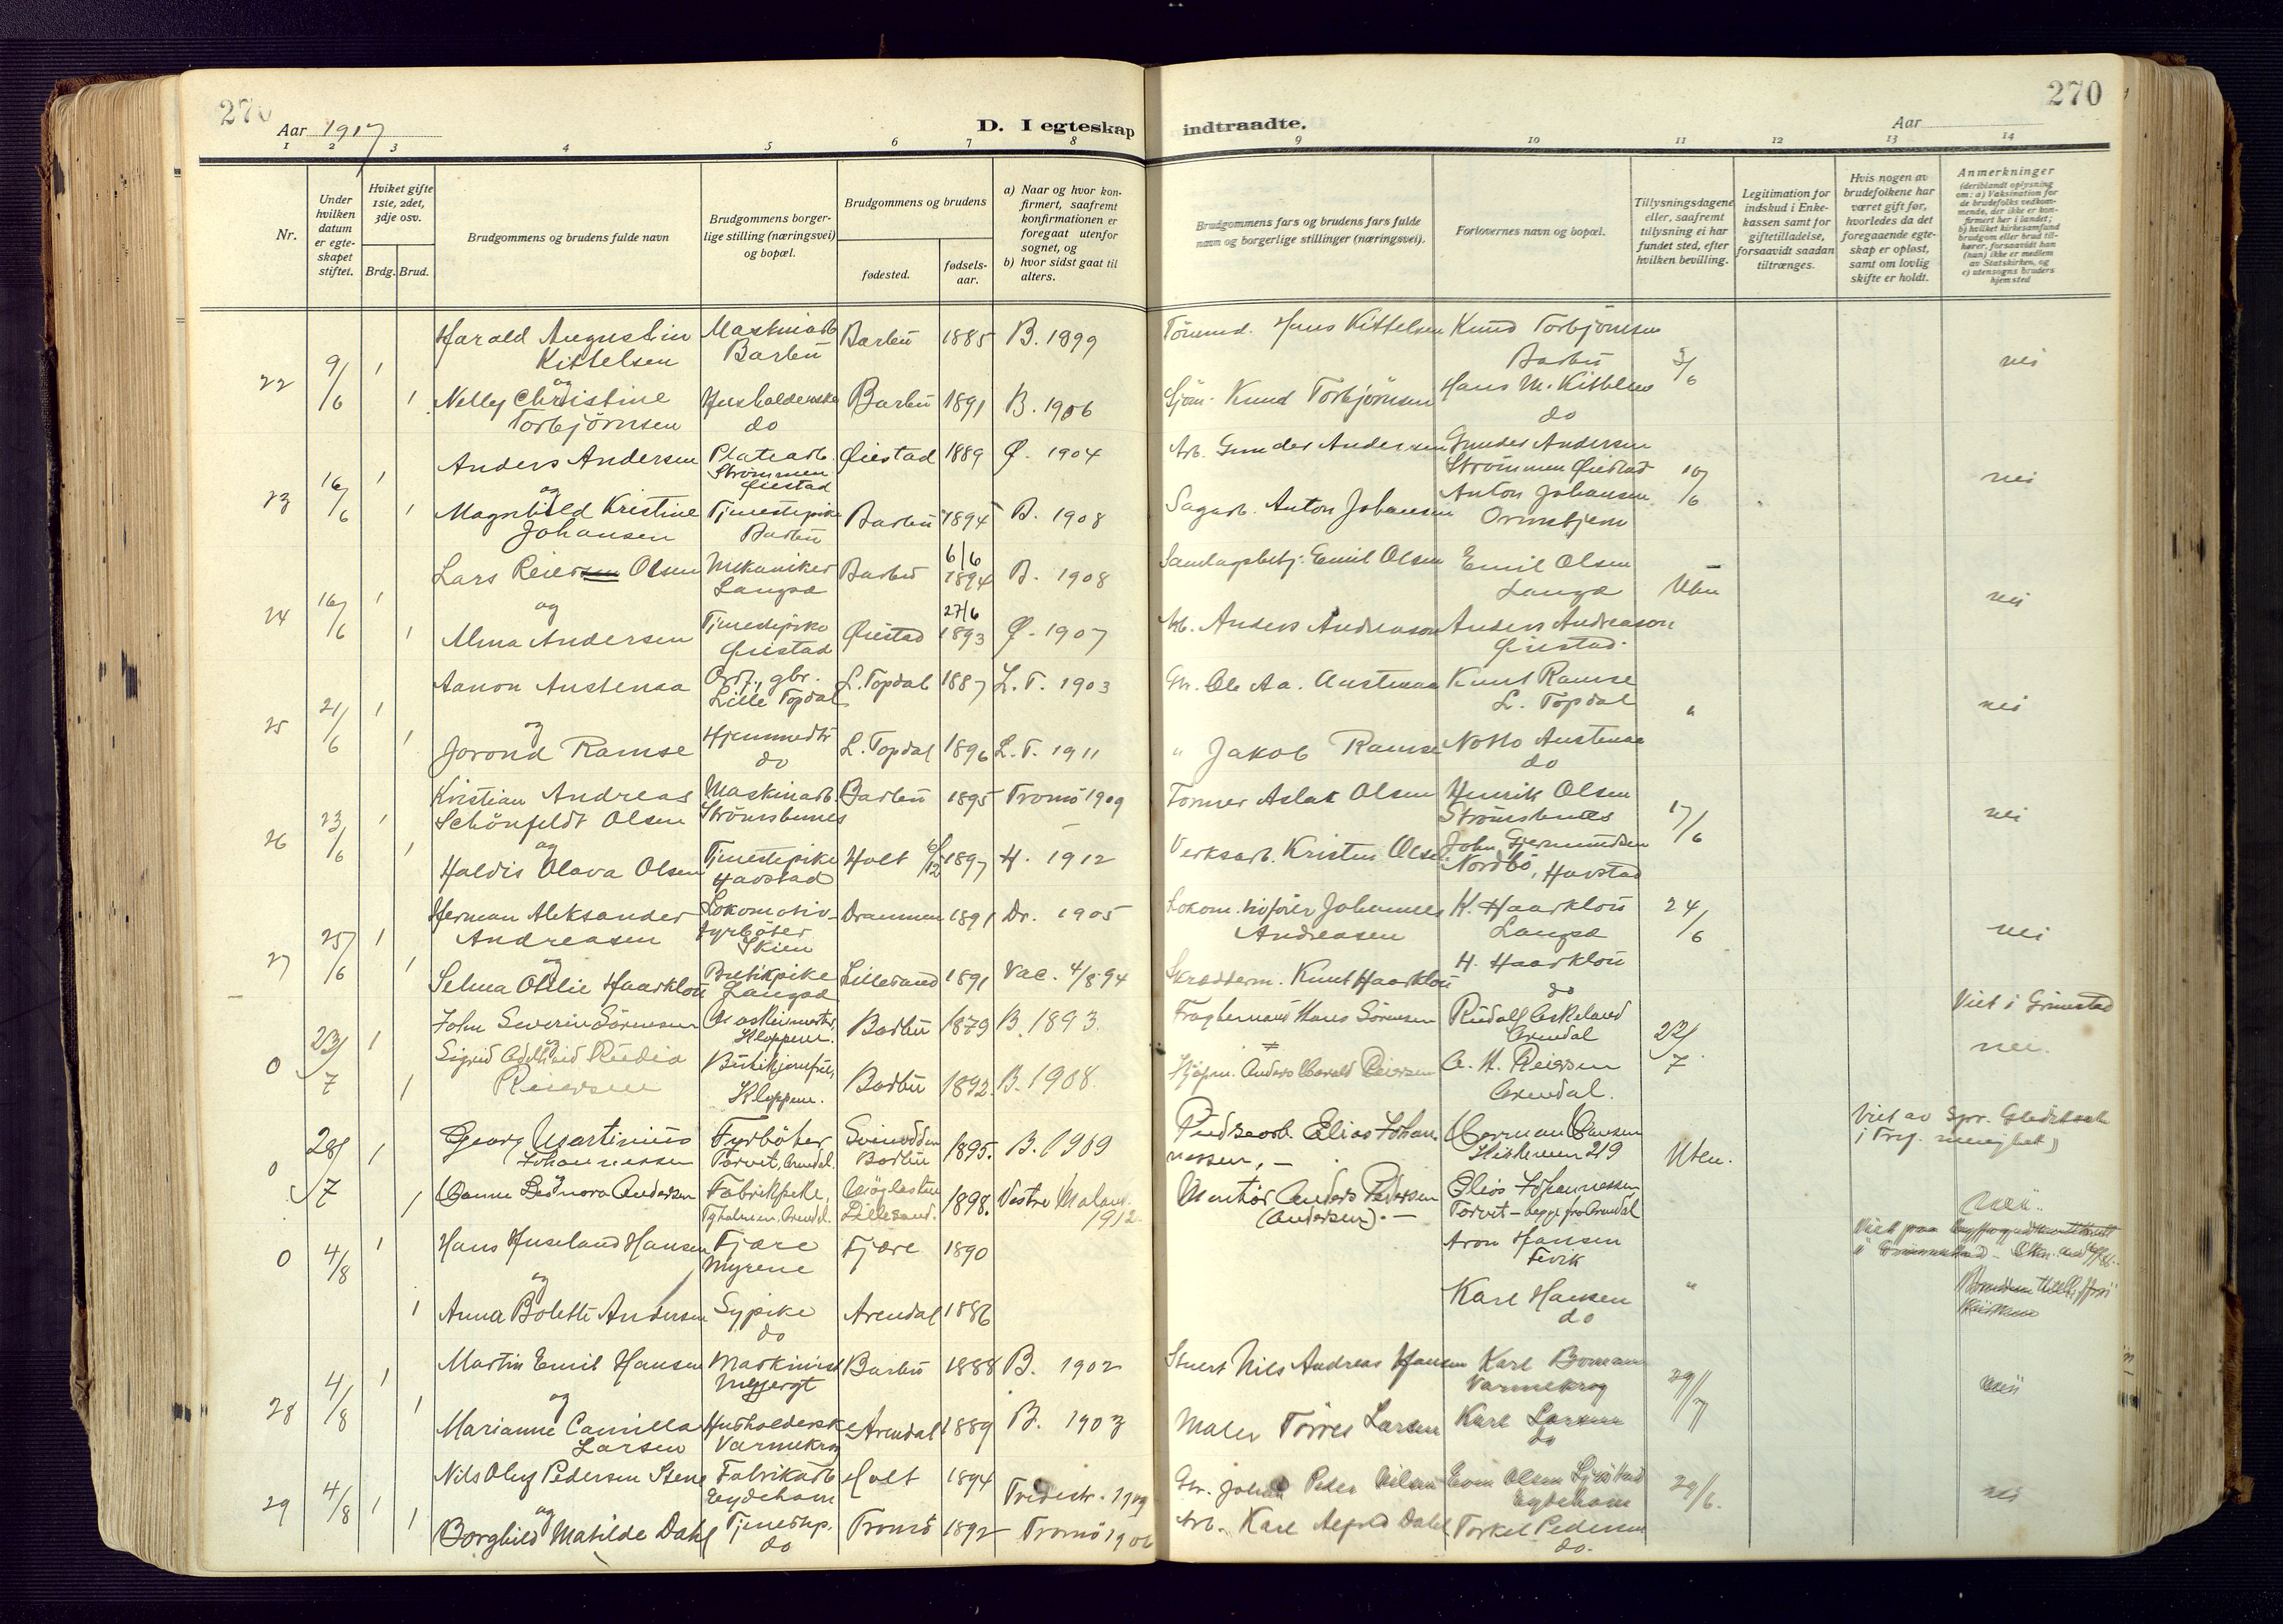 270
Aar 1917
D. I egteskap indtraadte.
Aar
270
1 2 3 4 5 6 7 8 9 10 11 12 13 14
Nr.
Under hvilken datum er egte-skapet stiftet.
Hviket gifte 1ste, 2det, 3dje osv.
Brdg. Brud.
Brudgommens og brudens fulde navn
Brudgommens borger-lige stilling (næringsvei) og bopæl.
Brudgommens og brudens
fødested.
fødsels-aar.
a) Naar og hvor kon-firmert, saafremt konfirmationen er foregaat utenfor sognet, og
b) hvor sidst gaat til alters.
Brudgommens fars og brudens fars fulde navn og borgerlige stillinger (næringsvei).
Forlovernes navn og bopæl.
Tillysningsdagene eller, saafremt tillysning ei har fundet sted, efter hvilken bevilling.
Legitimation for indskud i Enke-kassen samt for giftetilladelse, forsaavidt saadan tiltrænges.
Hvis nogen av brudefolkene har været gift før, hvorledes da det foregaaende egte-skap er opløst, samt om lovlig skifte er holdt.
Anmerkninger
(deriblandt oplysning om: a) Vaksination for de brudefolks vedkom-mende, der ikke er kon-firmert her i landet; b) hvilket kirkesamfund brudgom eller brud til-hører, forsaavidt han (hun) ikke er medlem av Statskirken, og c) utensogns bruders hjemsted
22 9/6 1 Harald Augustin Kittelsen Maskinarb Barbu Barbu 1885 B. 1899 Hans Kittelsen Knud Torbjörnsen Barbu 3/6 nei
og
1 Nelly Christine Torbjörnsen do Barbu 1891 B. 1906 Sjöm. Knud Torbjörnsen Hans M. Kittelsen do
23 16/6 1 Anders Andersen Platearb. Strömmen Øiestad Øiestad 1889 Ø. 1904 Arb. Gunder Andersen Gunder Andersen Strömmen Øiestad 10/6 nei
og
1 Magnhild Kristine Johansen Tjenestepike Barbu Barbu 1894 B. 1908 Sagarb. Anton Johansen Anton Johansen
24 16/6 1 Lars Reiersen Olsen Mekaniker Langsæ Barbu 6/6 1894 B. 1908 Emil Olsen Emil Olsen Langsæ Uten nei
og
1 Alma Andersen Tjenestepike Øiestad Øiestad 27/6 1893 Ø. 1907 Arb. Anders Andreason Anders Andreason Øiestad.
25 21/6 1 Aanon Austenaa gbr. Lille Topdal L. Topdal 1887 L. T. 1903 Ole Aa. Austenaa Knut Ramse L. Topdal " nei
og
1 Jorond Ramse do L. Topdal 1896 L. T. 1911 " Jakob Ramse Austenaa do
26 23/6 1 Kristian Andreas Schönfeldt Olsen Maskinarb. Strömsbunes Barbu 1895 Tromö 1909 Former Aslak Olsen Henrik Olsen Strömsbunes 17/6 nei
og
1 Haldis Olava Olsen Tjenestepike Havstad Holt 6/12 1897 H. 1912 Verksarb. Kristen Olsen John Gjermundsen Nordbö, Havstad
27 25/6 1 Herman Aleksander Andreasen Lokomotiv-fyrböter Skien Drammen 1891 Dr. 1905 Johannes Andreasen K. Haarklou Langsæ 24/6 nei
og
1 Selma Otilie Haarklou Butikpike Langsæ Lillesand 1891 Vac. 4/8 94 Knut Haarklou H. Haarklou do
0 23/7 1 John Severin Sörensen Kloppene. Barbu 1879 B. 1893. Hans Sörensen Rudolf Askeland Arendal 22/7 Viet i Grimstad nei.
og
1 Sigrid Reiersen Kloppene. Barbu 1892. B. 1908. Reiersen A. H. Reiersen Arendal.
0 28/7 1 Georg Martinius Johannessen Fyrböter Torvet, Arendal. Svinodden Barbu 1895. B. 1909 Elias Johannessen, – Herman Hansen 219 Uten. Viet av
og
1 Hanne Andersen Fabrikpike, Arendal. Lillesand. 1898. Vestre Moland. 1912. Anders Pedersen (Andersen). – Elias Johannessen Torvet – begge fra Arendal nei.
0 4/8 1 Hans Huseland Hansen Fjære Myrene Fjære 1890 Aron Hansen Fevik Viet paa
og
1 Anna Bolette Andersen Sypike do Arendal 1886 Karl Hansen do "
28 4/8 1 Martin Emil Hansen Maskinist Barbu 1888 B. 1902 Nils Andreas Hansen Karl Varmekrog 29/7 nei
og
1 Marianne Camilla Larsen Varmekrog Arendal 1889 B. 1903 Maler Törres Larsen Karl Larsen do
29 4/8 1 Nils Oluf Pedersen Stene Fabrikarb Eydehavn Holt 1894 Peder Nilsen Olsen Eydehavn 29/6. nei
og
1 Borghild Matilde Dahl Tjenestep. do Tromö 1892 Tromö 1906 Arb. Karl Dahl Torkel Pedersen do.